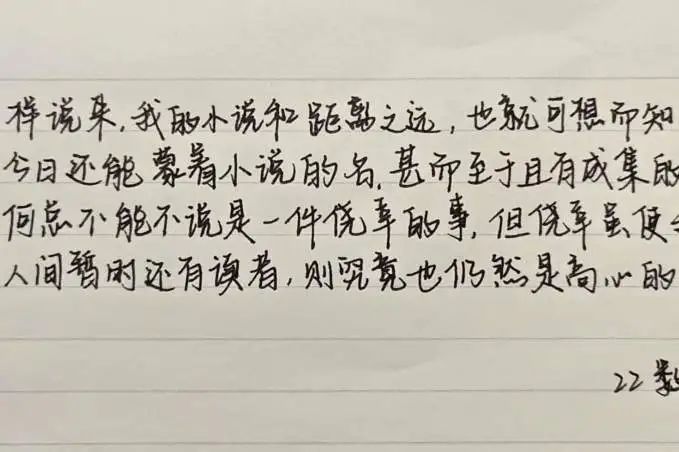 样说来,我的小说和距离之远,也就可想而知
今日还能蒙着小说的名,甚而至于且有成集的
何总不能不说是一件侥幸的事,但侥幸虽使
人间暂时还有读者,则究竟也仍然是高心的
22数